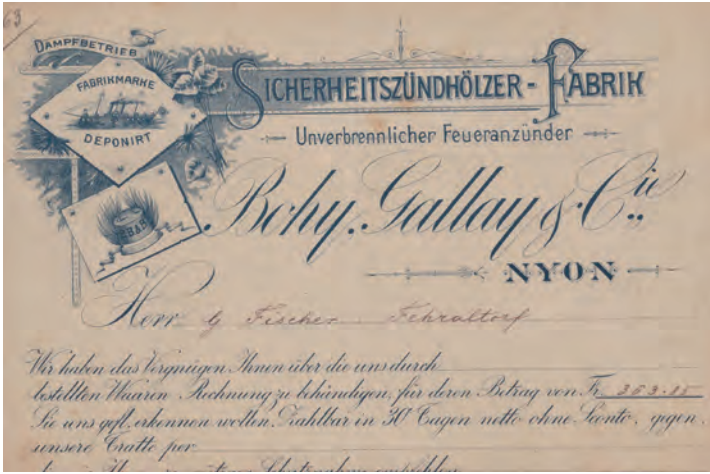 63
DAMPFBETRIEB
FABRIKMARKE
DEPONIRT
SICHERHEITSZÜNDHÖLZER - FABRIK
Unverbrennlicher Feueranzünder
Bohy, Gallay & Cie
NYON
Herr G Fischer Fehraltorf
Wir haben das Vergnügen Ihnen über die uns durch
bestellten Waaren Rechnung zu behändigen, für deren Betrag von Fr. 363.85
Sie uns gefl. erkennen wollen, Zahlbar in 30 Tagen netto ohne Sconto, gegen
unsere Tratte per